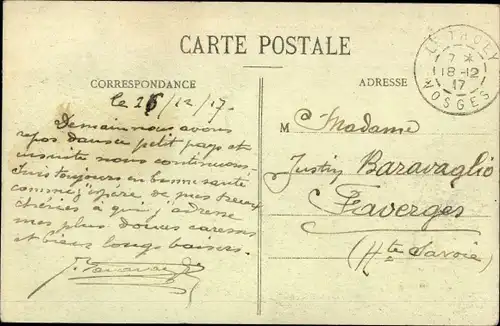 CARTE POSTALE
CORRESPONDANCE
ADRESSE
LE THOLY
7 *
18-12
17
VOSGES
le 16/12/17.
Demain nous avons
repos dans ce petit pays et
ensuite nous continuons.
Suis toujours en bonne santé
comme j'espère de mes deux
chéries à qui j'adresse
mes plus douces caresses
et bien longs baisers.
M Madame
Justin Baravaglio
Faverges
(Hte Savoie)